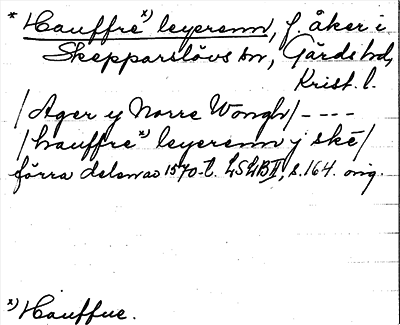 * Hauffre x) leyerenn, f. åker i
Skepparslövs sn, Gärds hd,
Krist. l.
/Ager y Norre Wongh/ - - - -
/hauffre x) leyerenn j ske/
förra delen av 1570-t. LSLB II, s. 164. orig.
x) Hauffue.